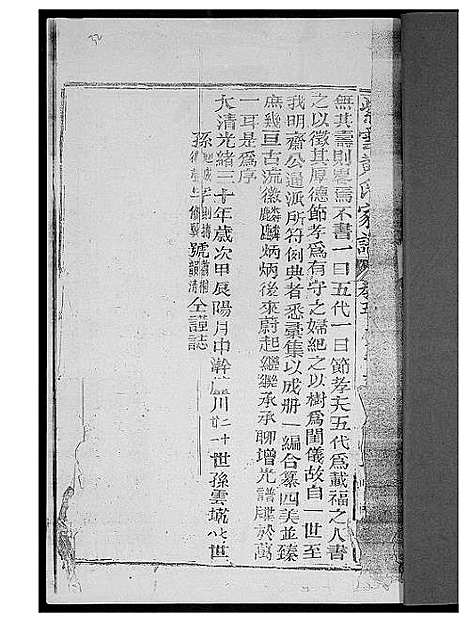 無其壽則畧焉不書一曰五代一曰節孝夫五代為載福之人書
之以徵其厚德節孝為有守之婦紀之以樹為閨儀故自一世至
我明齋公通派所符例典者悉彙集以成册一編合纂四美並臻
庶幾亘古流徽麟麟炳炳後來蔚起繼繼承承聊增光譜牒於萬
一耳是為序
大清光緒三十年歲次甲辰陽月中澣 川二十世孫雲城
孫 號 仝謹誌
氏家譜